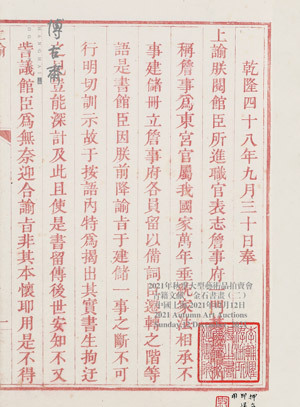 乾隆四十八年九月三十日奉
上諭朕閱館臣所進職官表志詹事府
稱詹事為東宮官屬我國家萬年垂 家法相承不
事建儲冊立詹事府各員留以備詞 遷轉之階等
語是書館臣因朕前降諭旨于建儲一事之斷不可
行明切訓示故于按語內特為揭出其實書生拘迂
之見豈能深計及此且使是書留傳後世安知不又
訾議館臣為無奈迎合諭旨非其本懷耶用是不得
上諭
博古齋
2021年秋季大型藝術品拍賣會
古籍文獻·金石書畫(二)
中國上海 2021年 月12日
2021 Autumn Art Auctions
Sunday